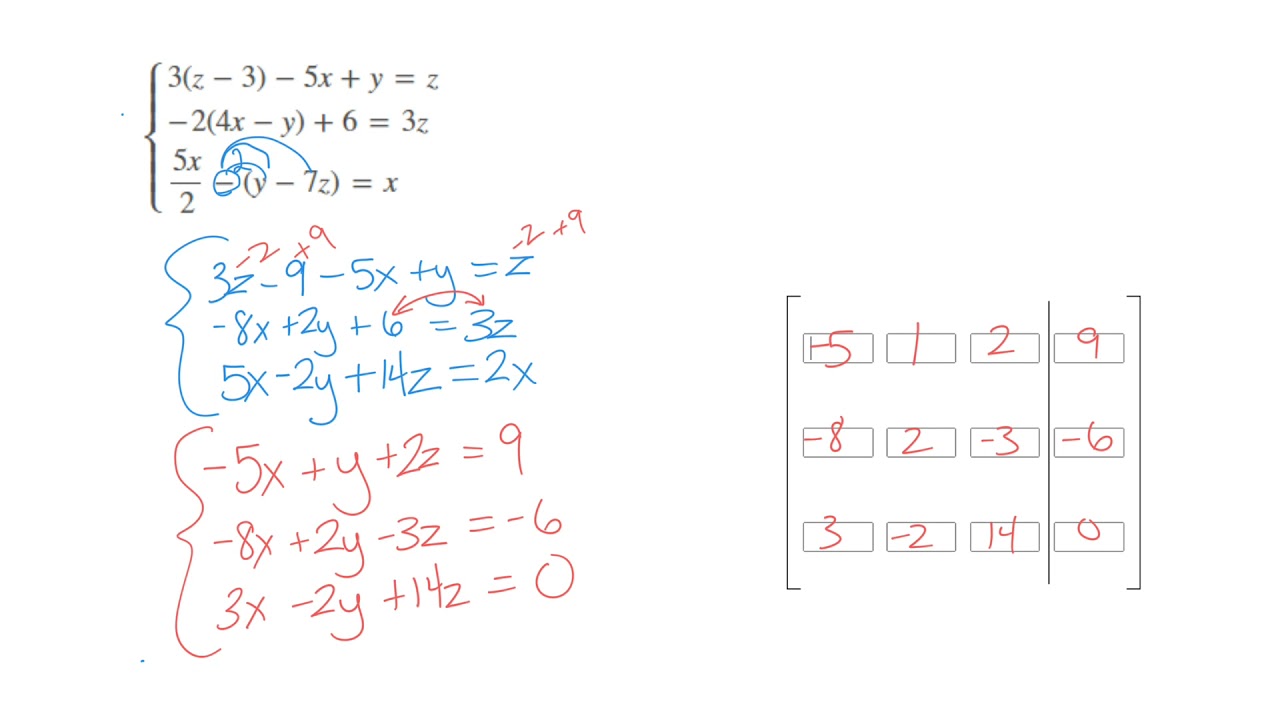 3(z − 3) − 5x + y = z
−2(4x − y) + 6 = 3z
5x/2 − (y − 7z) = x
2
-2 +9 -2 +9
3z - 9 - 5x + y = z
-8x + 2y + 6 = 3z
5x - 2y + 14z = 2x
-5x + y + 2z = 9
-8x + 2y - 3z = -6
3x - 2y + 14z = 0
-5 1 2 9
-8 2 -3 -6
3 -2 14 0